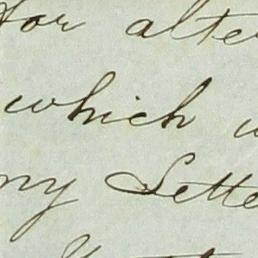 for alte
which w
my Lette